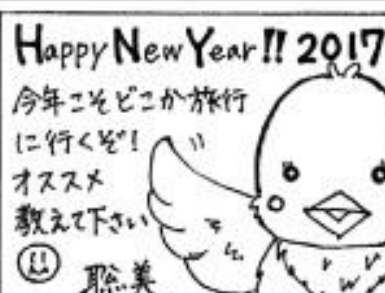 Happy New Year!! 2017
今年こそどこか旅行
に行くぞ!
オススメ
教えて下さい
聡美